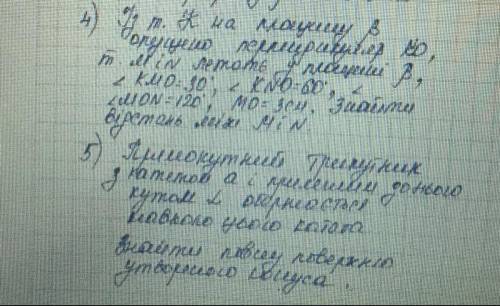 4) Із т. К на площину β
опущено перпендикуляр КО,
т. М і N лежать у площині β,
∠ КМО=30°, ∠ KNO=60°, ∠
∠MON=120°, МО=3см. Знайти
відстань між М і N.
5) Прямокутний трикутник
з катетом а і прилеглим до нього
кутом α обертається
навколо цього катета
Знайти повну поверхню
утвореного конуса.